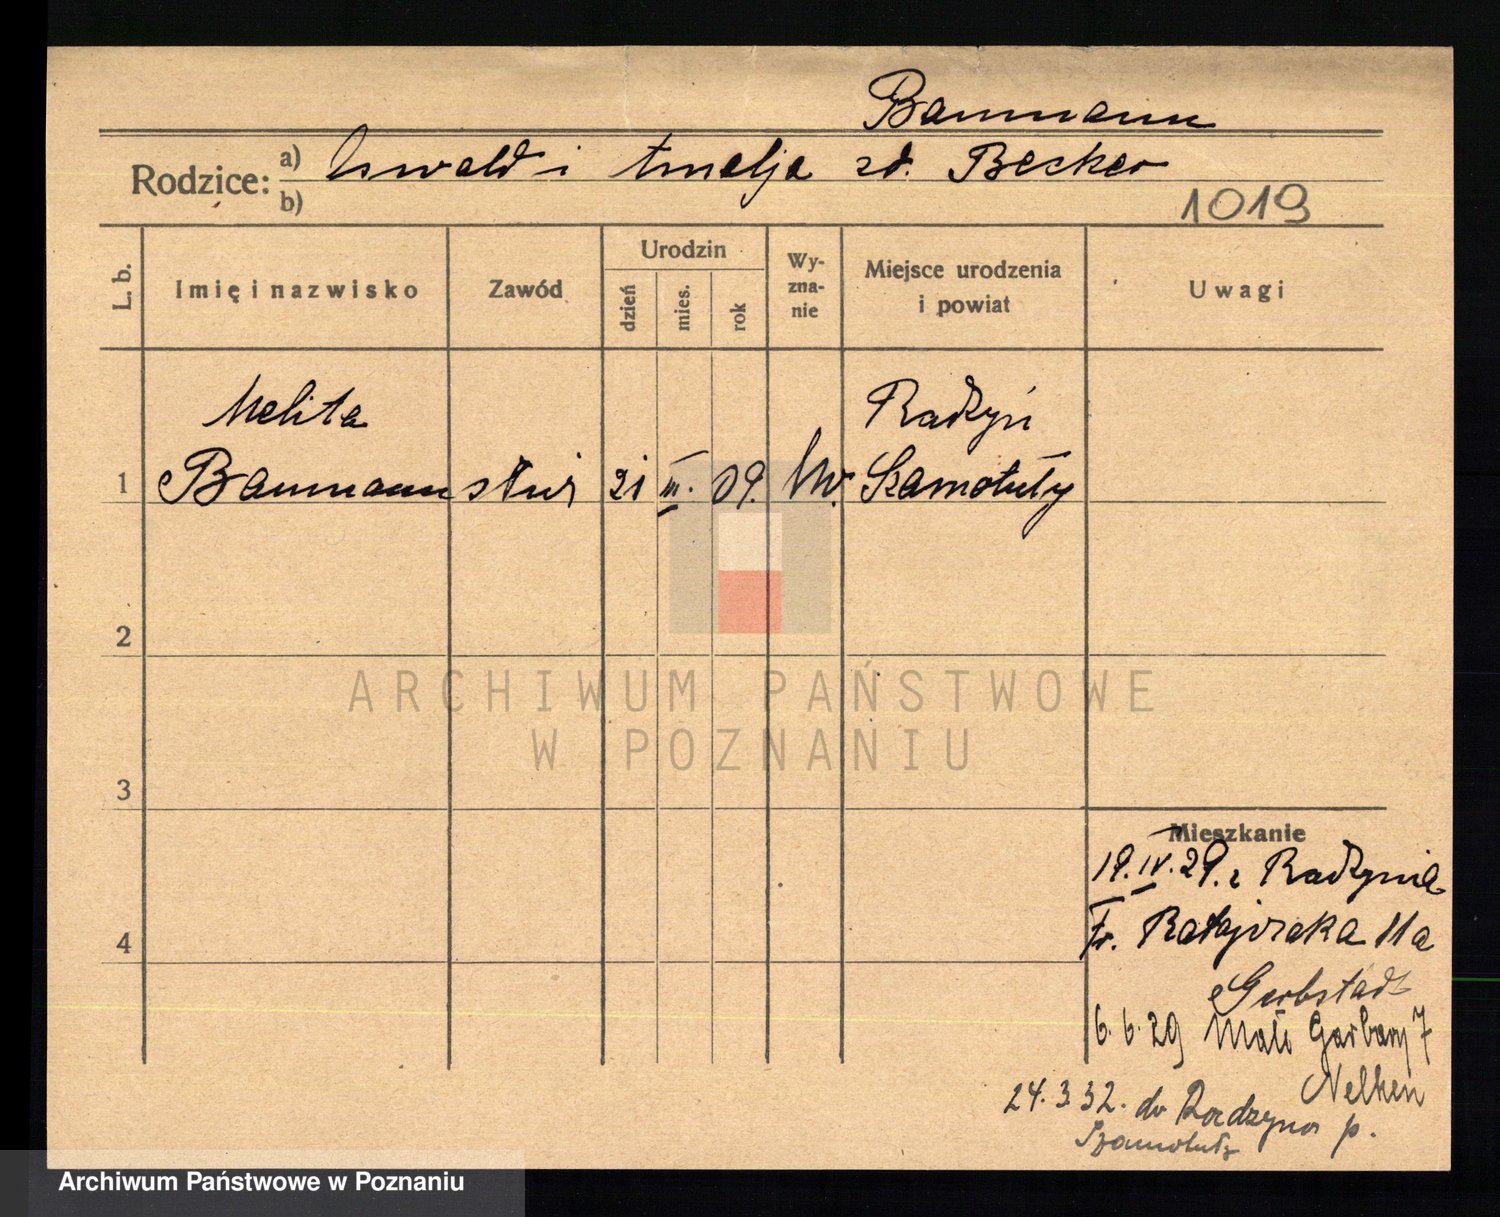 Baumann
Rodzice: a) Oswald i Amalja zd. Becker
b)
1019
L. b.
Imię i nazwisko
Zawód
Urodzin
dzień
mies.
rok
Wy-
zna-
nie
Miejsce urodzenia
i powiat
Uwagi
Melita
Radzyń
1 Baumann służ 21 III. 09. Szamotuły
2
ARCHIWUM PAŃSTWOWE
W POZNANIU
3
Mieszkanie
19.IV.29. z Radzynia
Fr. Ratajczaka 11a
4
Gerbstädt
6.6.29 Małe Garbary 7
Nelken
24.3.32. do Radzyna p.
Szamotuły
Archiwum Państwowe w Poznaniu